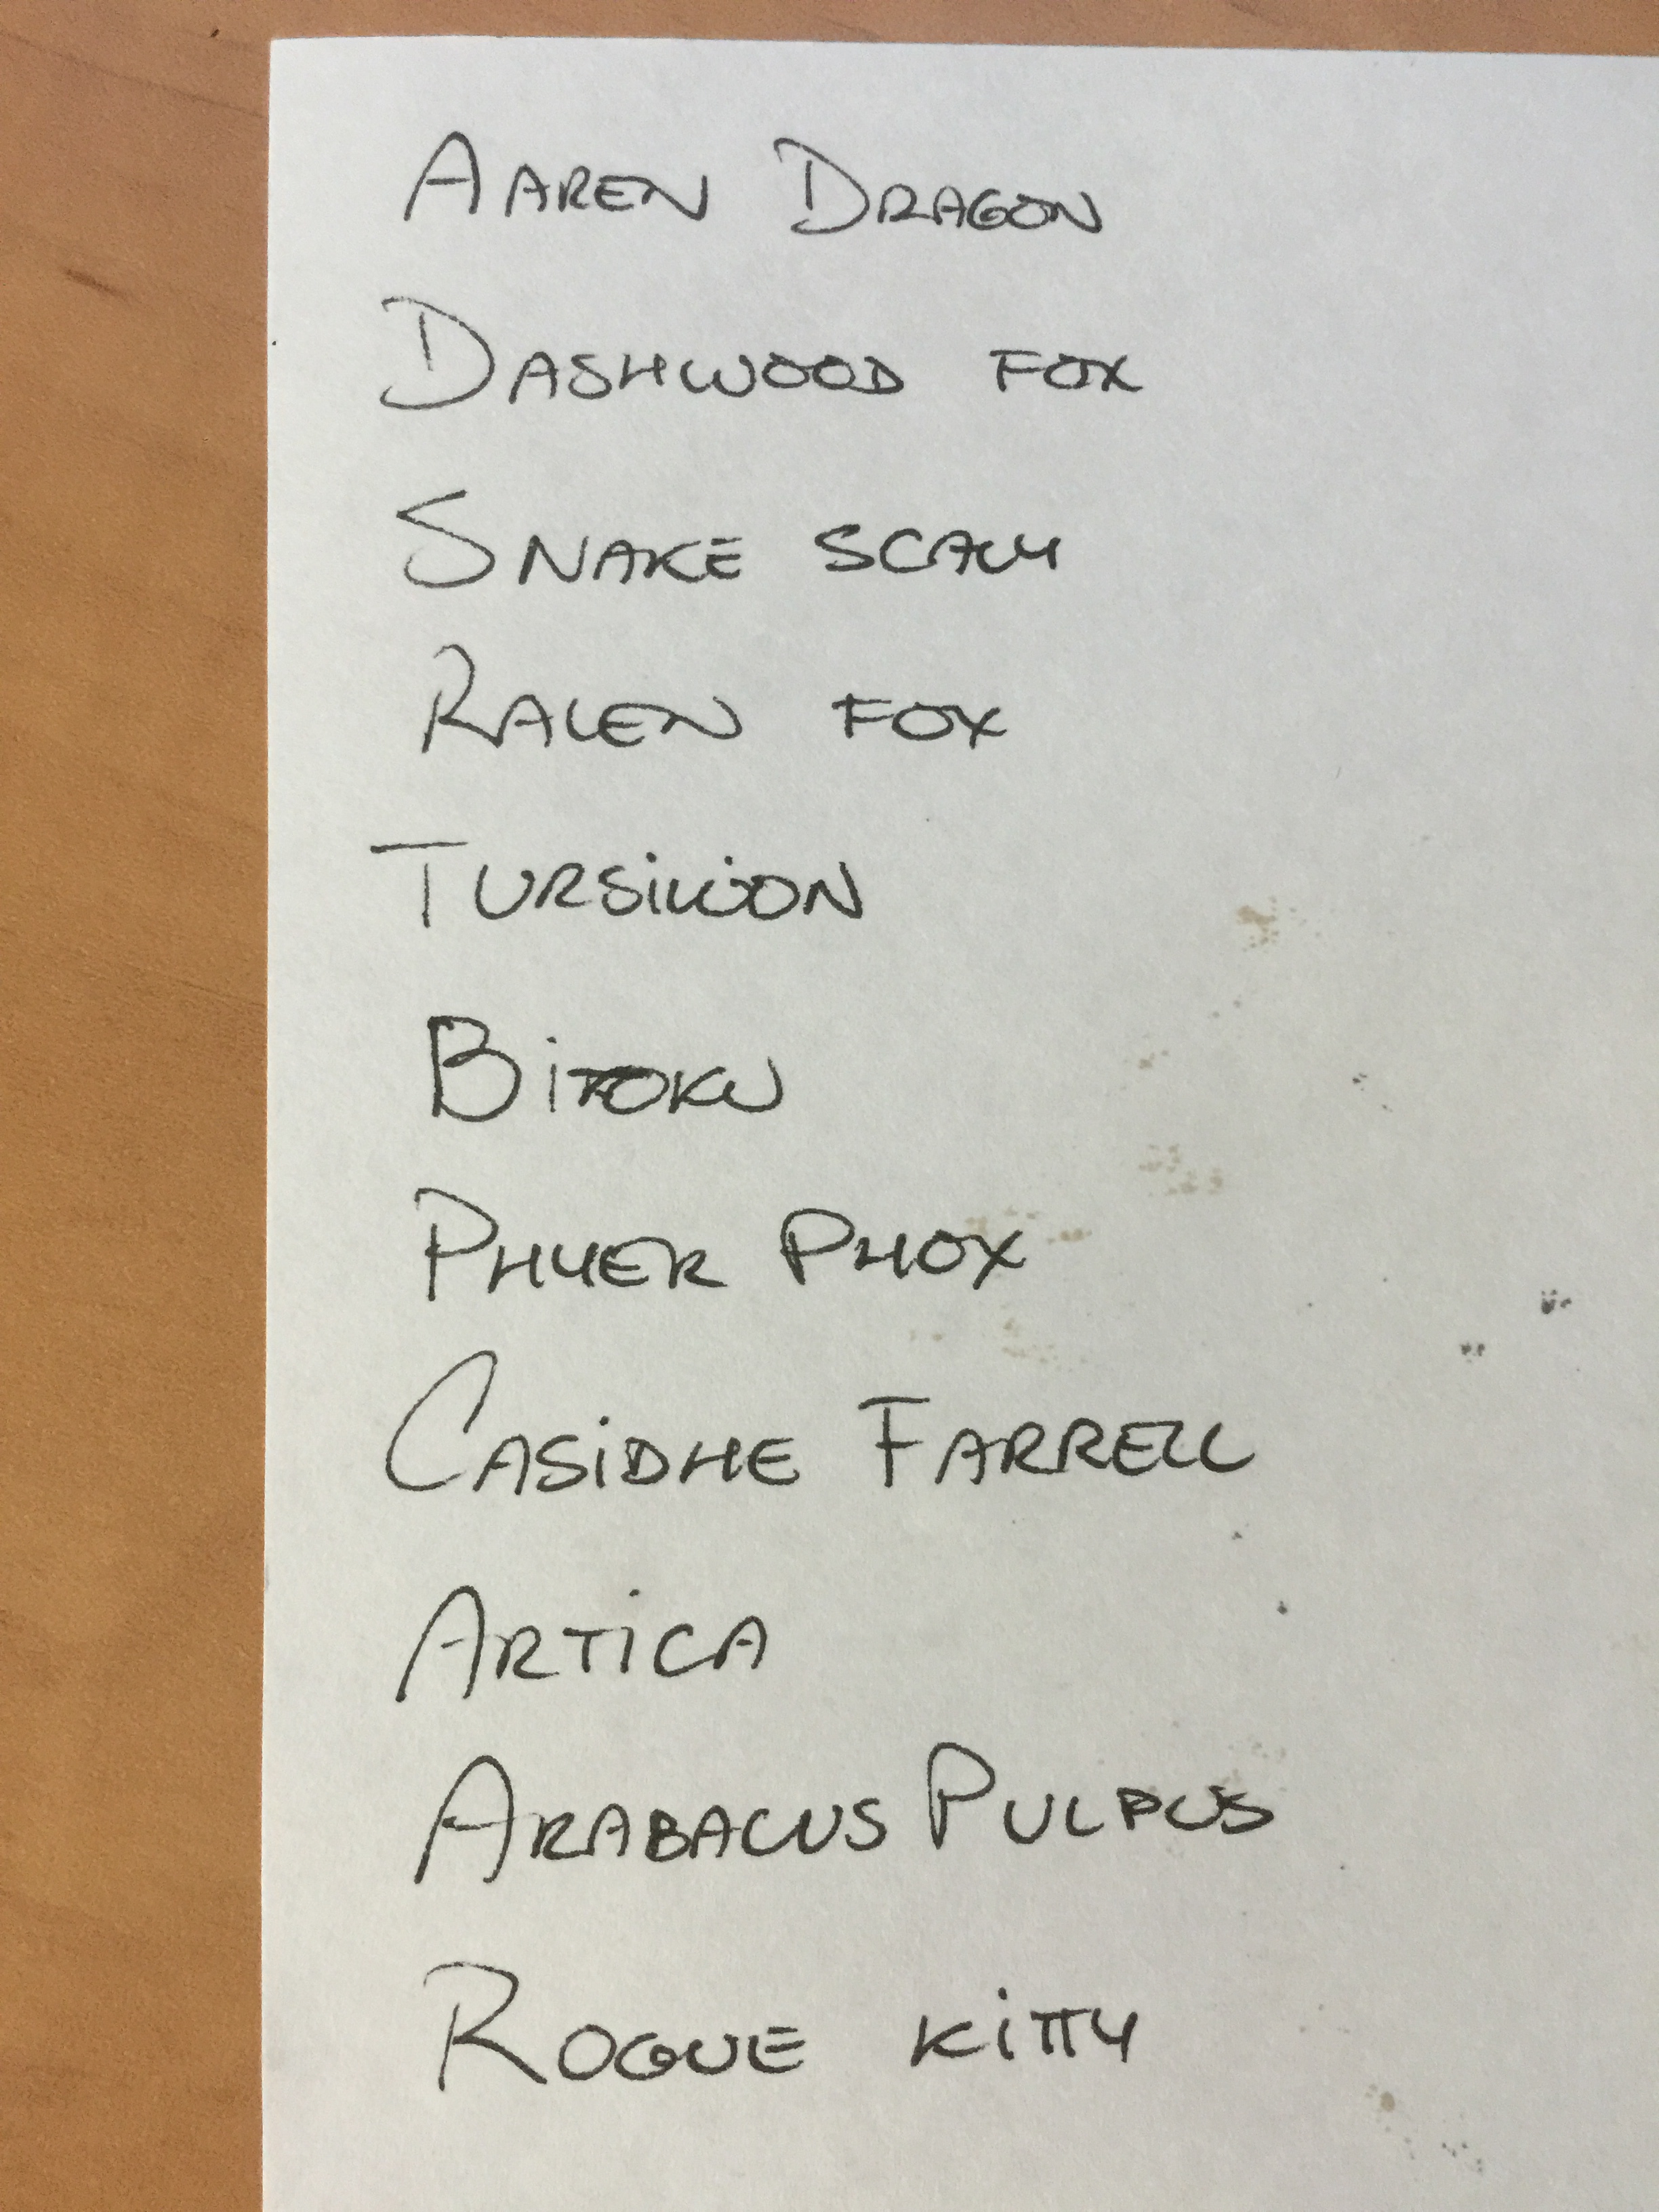 AAREN DRAGON
DASHWOOD FOX
SNAKE SCALY
RALEN FOX
TURSiWON
BiTOKU
PHYER PHOX
CASiDHE FARRELL
ARTiCA
ARABACUS PULPUS
ROGUE KiTTY